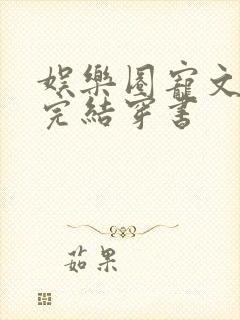 娛樂圈寵文
完結穿書
茹果